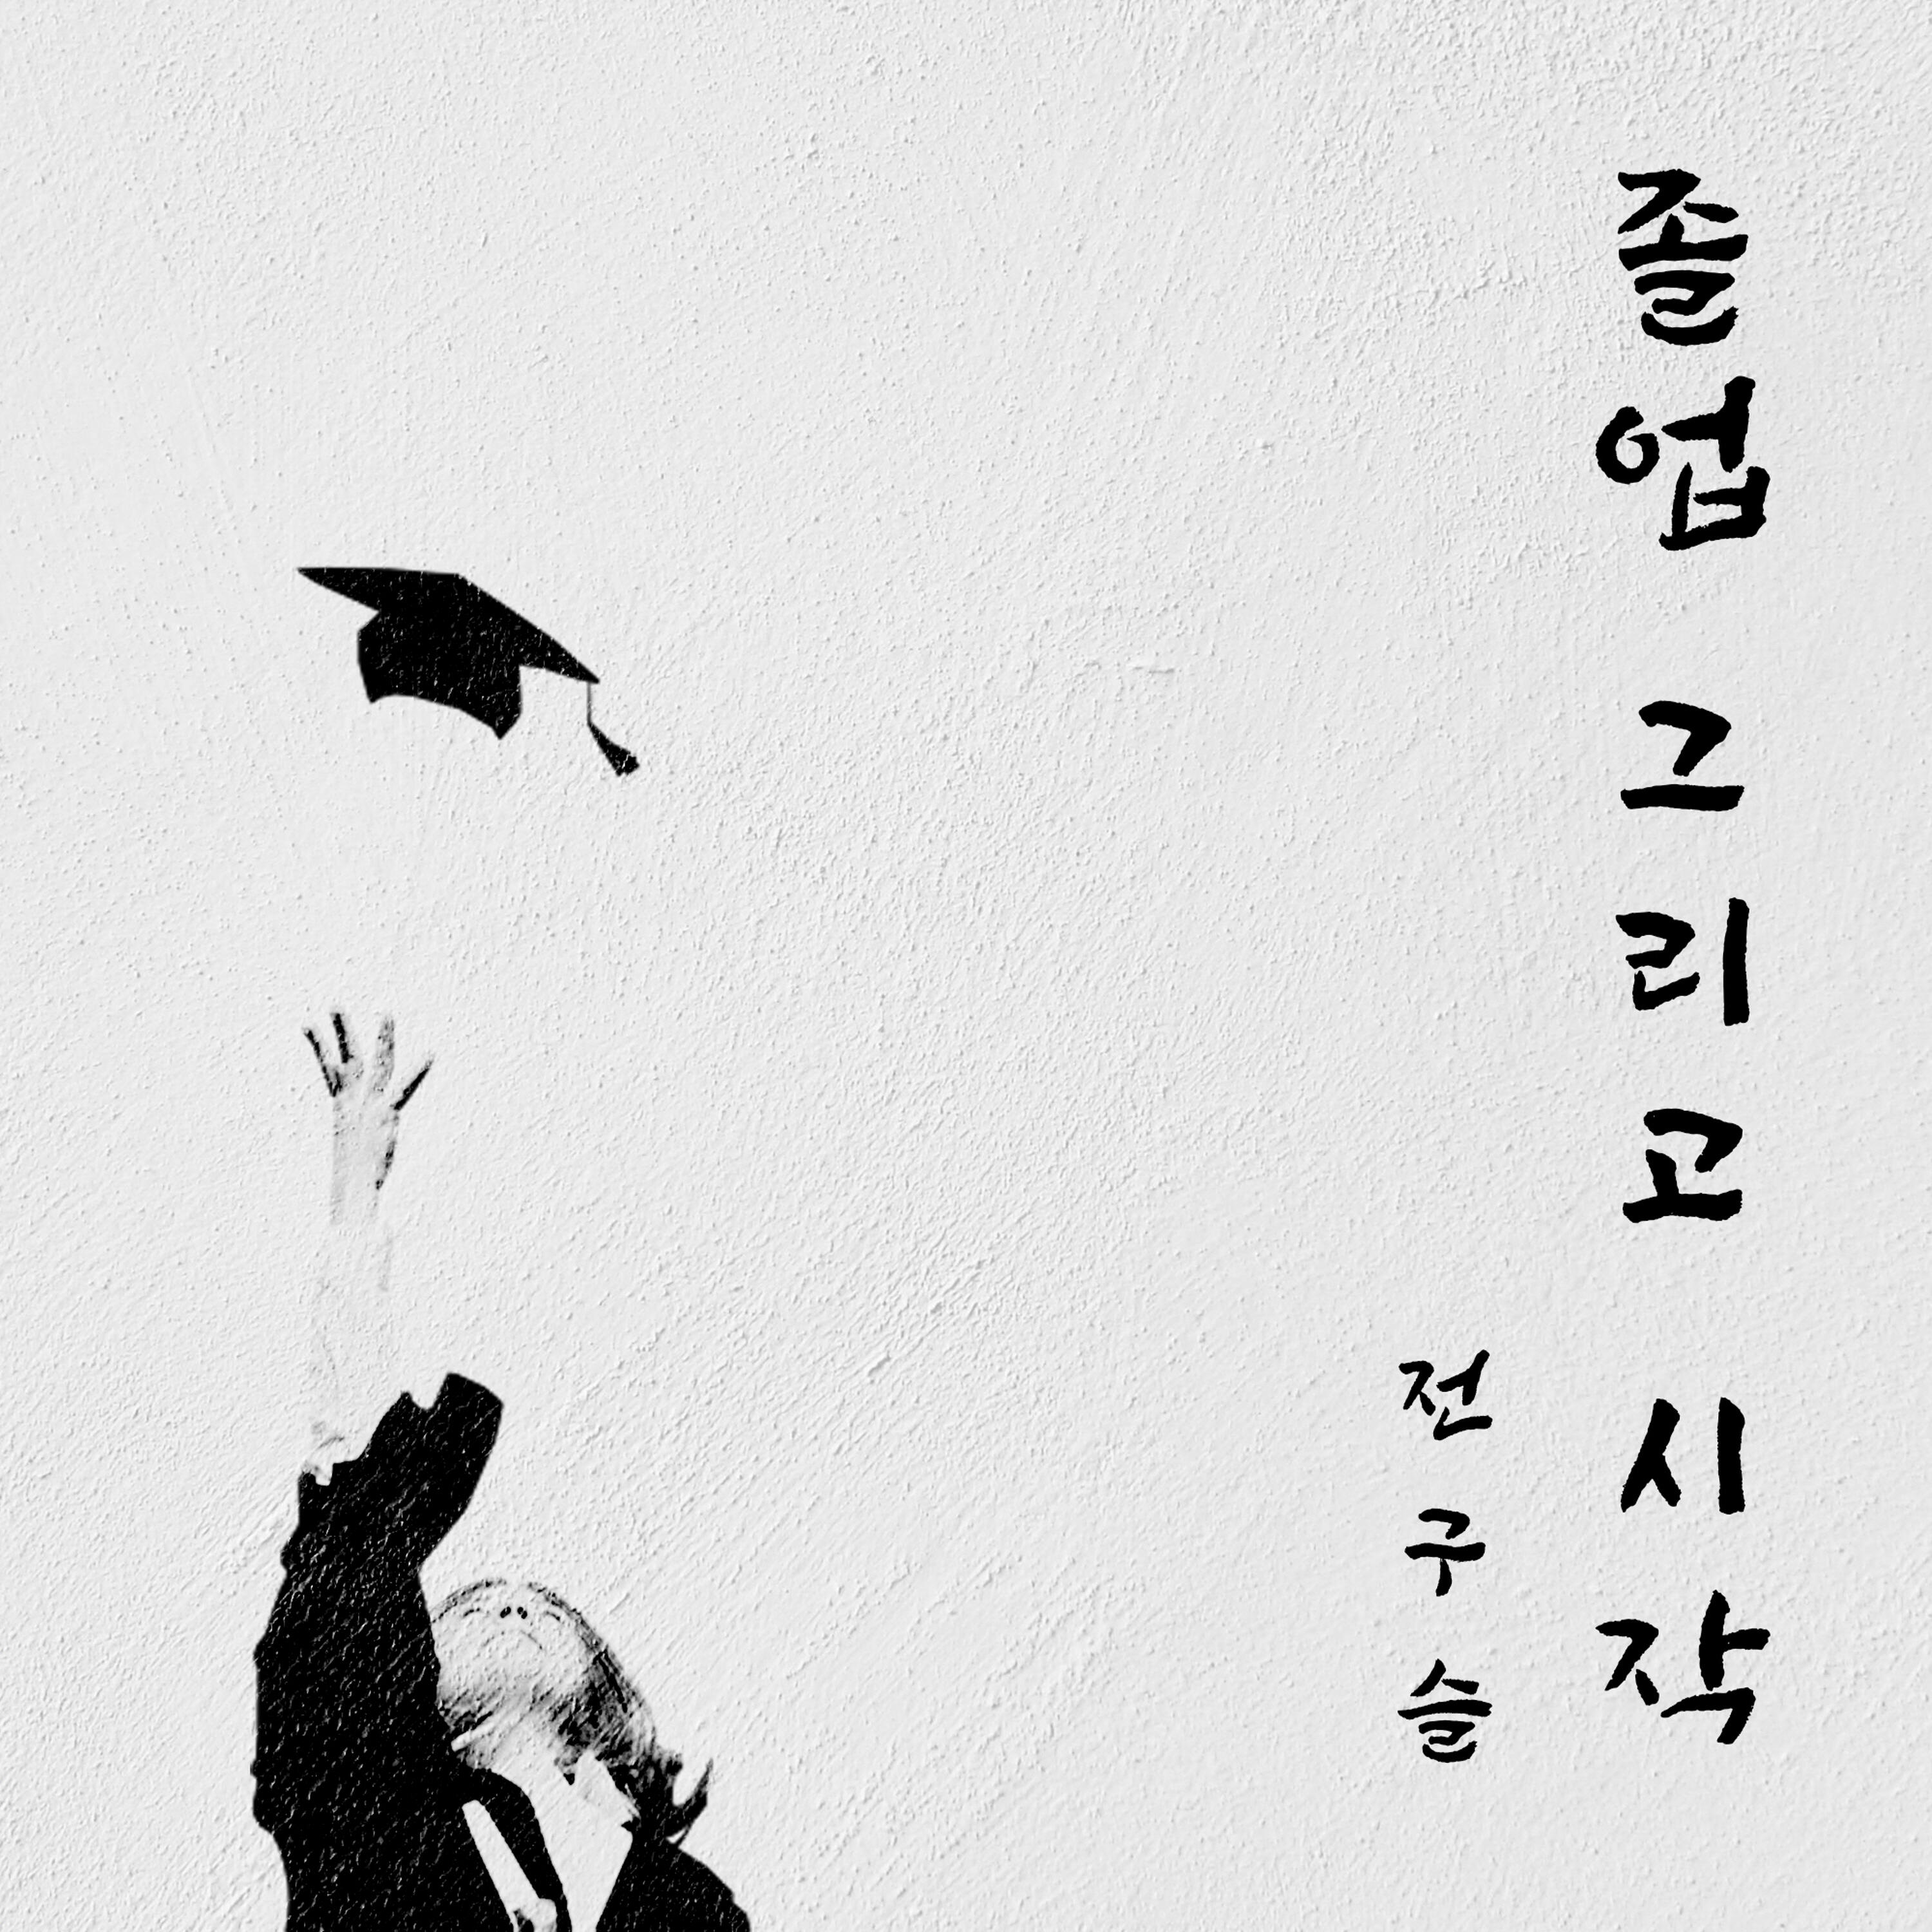 졸업 그리고 시작
전구슬